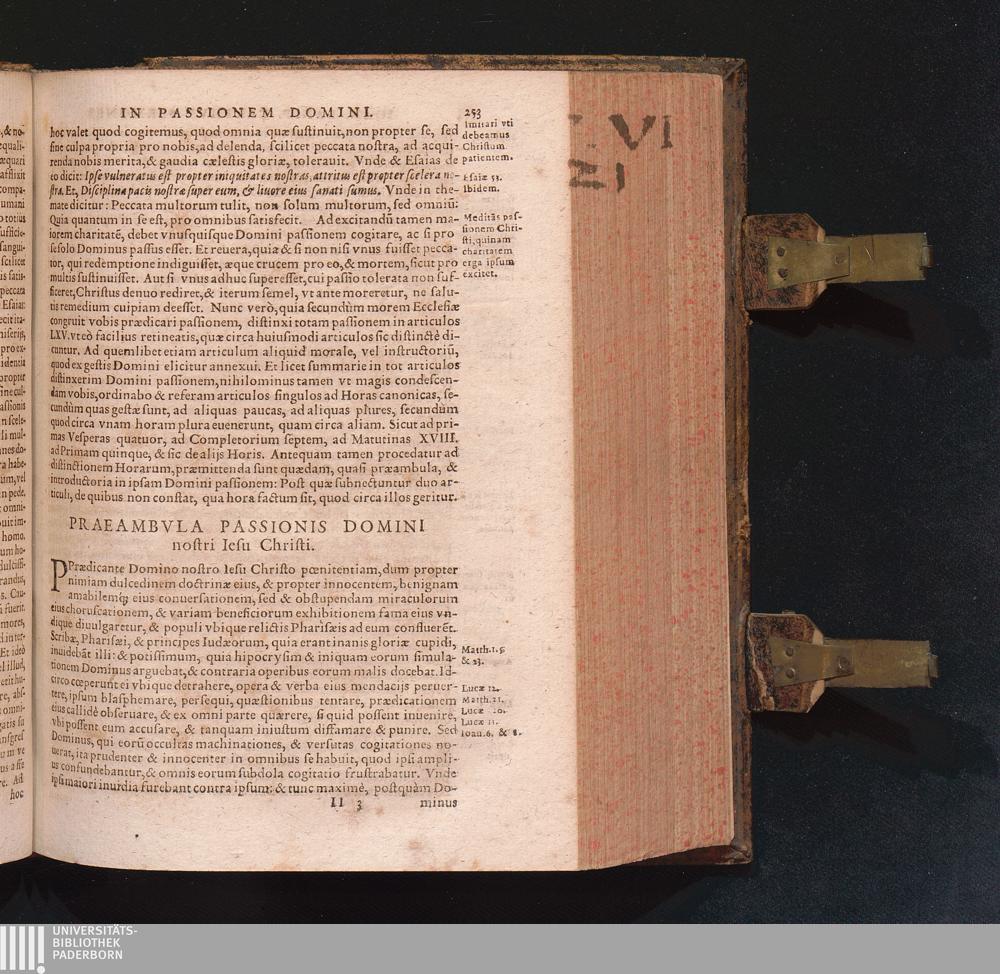 IN PASSIONEM DOMINI.
253
hoc valet quod cogitemus, quod omnia quæ ſuſtinuit, non propter ſe, ſed
ſine culpa propria pro nobis, ad delenda, ſcilicet peccata noſtra, ad acqui-
renda nobis merita, & gaudia cæleſtis gloriæ, tolerauit. Vnde & Eſaias de
eo dicit: Ipſe vulneratus eſt propter iniquitates noſtras, attritus eſt propter ſcelera no-
ſtra. Et, Diſciplina pacis noſtræ ſuper eum, & liuore eius ſanati ſumus. Vnde in the-
mate dicitur: Peccata multorum tulit, non ſolum multorum, ſed omniū:
Quia quantum in ſe eſt, pro omnibus ſatisfecit. Ad excitandū tamen ma-
iorem charitatē, debet vnuſquiſque Domini paſſionem cogitare, ac ſi pro
ſe ſolo Dominus paſſus eſſet. Et reuera, quia & ſi non niſi vnus fuiſſet pecca-
tor, qui redemptione indiguiſſet, æque crucem pro eo, & mortem, ſicut pro
multis ſuſtinuiſſet. Aut ſi vnus adhuc ſupereſſet, cui paſſio tolerata non ſuf-
ficeret, Chriſtus denuo rediret, & iterum ſemel, vt ante moreretur, ne ſalu-
tis remedium cuipiam deeſſet. Nunc verò, quia ſecundùm morem Eccleſiæ
congruit vobis prædicari paſſionem, diſtinxi totam paſſionem in articulos
LXV. vt eò facilius retineatis, quæ circa huiuſmodi articulos ſic diſtinctè di-
cuntur. Ad quemlibet etiam articulum aliquid morale, vel inſtructoriū,
quod ex geſtis Domini elicitur annexui. Et licet ſummarie in tot articulos
diſtinxerim Domini paſſionem, nihilominus tamen vt magis condeſcen-
dam vobis, ordinabo & referam articulos ſingulos ad Horas canonicas, ſe-
cundùm quas geſtæ ſunt, ad aliquas paucas, ad aliquas plures, ſecundùm
quod circa vnam horam plura euenerunt, quam circa aliam. Sicut ad pri-
mas Veſperas quatuor, ad Completorium ſeptem, ad Matutinas XVIII.
ad Primam quinque, & ſic de alijs Horis. Antequam tamen procedatur ad
diſtinctionem Horarum, præmittenda ſunt quædam, quaſi præambula, &
introductoria in ipſam Domini paſſionem: Poſt quæ ſubnectuntur duo ar-
ticuli, de quibus non conſtat, qua hora factum ſit, quod circa illos geritur.
PRAEAMBVLA PASSIONIS DOMINI
noſtri Ieſu Chriſti.
PRædicante Domino noſtro Ieſu Chriſto pœnitentiam, dum propter
nimiam dulcedinem doctrinæ eius, & propter innocentem, benignam
amabilemq; eius conuerſationem, ſed & obſtupendam miraculorum
eius choruſcationem, & variam beneficiorum exhibitionem fama eius vn-
dique diuulgaretur, & populi vbique relictis Phariſæis ad eum confluerēt.
Scribæ, Phariſæi, & principes Iudæorum, quia erant inanis gloriæ cupidi,
inuidebāt illi: & potiſſimum, quia hipocryſim & iniquam eorum ſimula-
tionem Dominus arguebat, & contraria operibus eorum malis docebat. Id-
circo cœperunt ei vbique detrahere, opera & verba eius mendacijs peruer-
tere, ipſum blaſphemare, perſequi, quæſtionibus tentare, prædicationem
eius callidè obſeruare, & ex omni parte quærere, ſi quid poſſent inuenire,
vbi poſſent eum accuſare, & tanquam iniuſtum diffamare & punire. Sed
Dominus, qui eorū occultas machinationes, & verſutas cogitationes no-
uerat, ita prudenter & innocenter in omnibus ſe habuit, quod ipſi ampli-
us confundebantur, & omnis eorum ſubdola cogitatio fruſtrabatur. Vnde
ipſi maiori inuidia furebant contra ipſum: & tunc maximè, poſtquàm Do-
II 3
minus
Imitari vti
debeamus
Chriſtum
patientem.
Eſaiæ 53.
Ibidem.
Meditās paſ-
ſionem Chri-
ſti, quinam
charitatem
erga ipſum
excitet.
Matth.
& 23.
Lucæ 12.
Matth. 21.
Lucæ
Lucæ 11.
Ioan. 6. & 8.
hoc
VI
UNIVERSITÄTS-
BIBLIOTHEK
PADERBORN